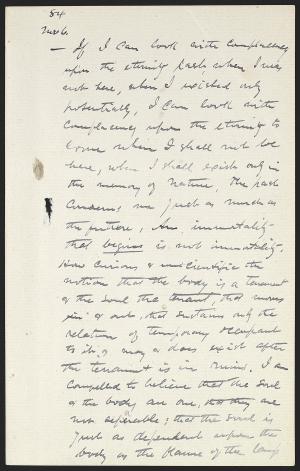 84
Nov 6.
— If I can look with complacency
upon the eternity past, when I was
not here, when I existed only
potentially, I can look with
complacency upon the eternity to
come when I shall not be
here, when I shall exist only in
the memory of Nature. The past
concerns me just as much as
the future. An immortality
that begins is not immortality.
How curious & unscientific the
notion that the body is a tenement
& the soul the tenant, that moves
in & out, that sustains only the
relation of temporary occupant
to it, & may & does exist after
the tenement is in ruins. I am
compelled to believe that the soul
& the body are one, that they are
not seperable; that the soul is
just as dependent upon the
body as the flame of the lamp